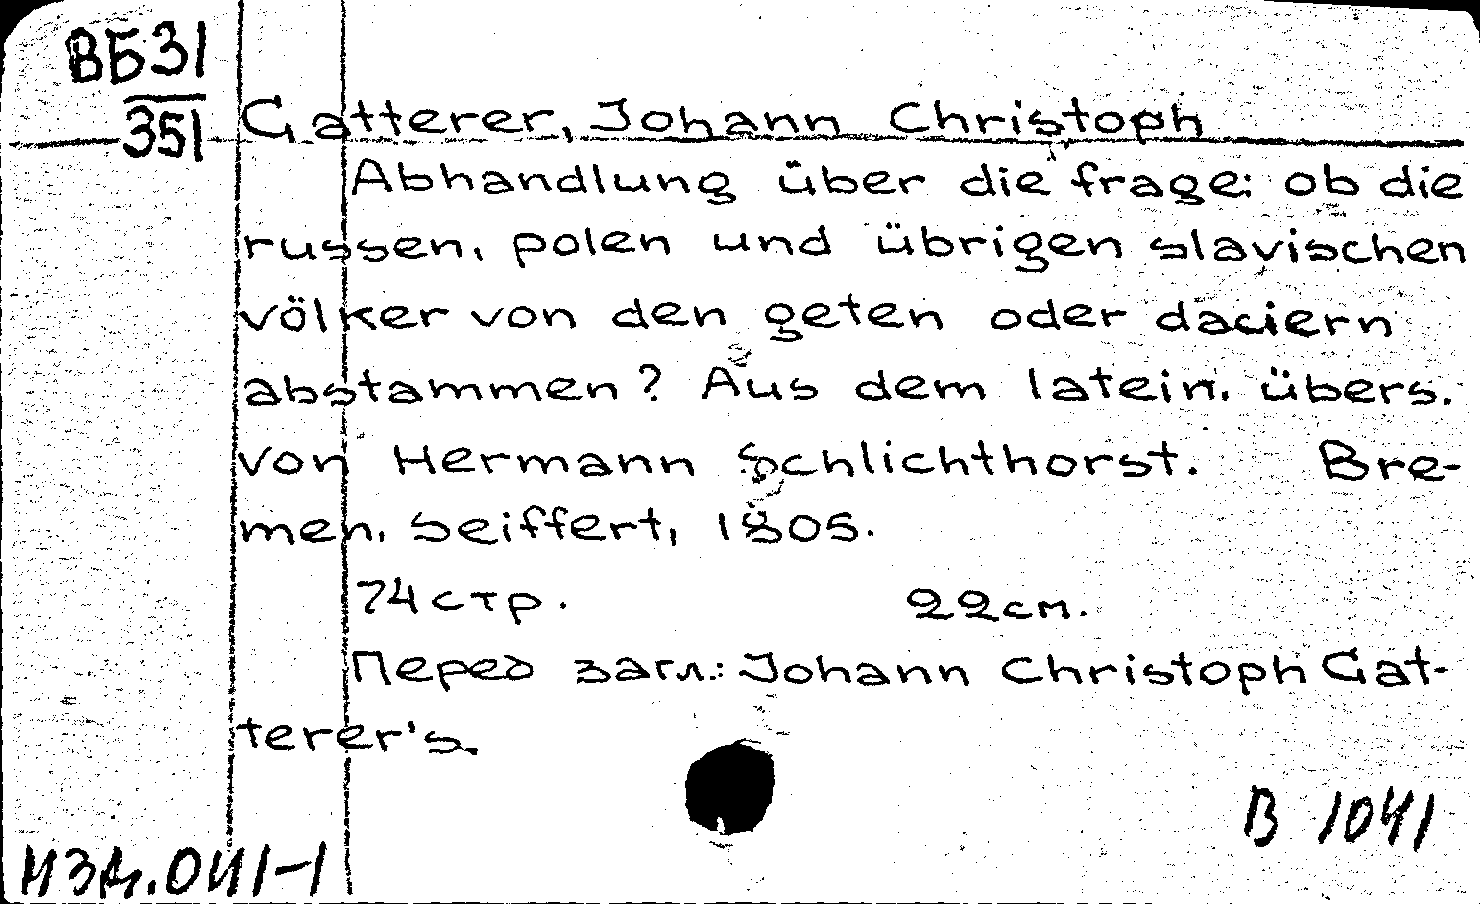 ВБ31
351
Gatterer, Johann Christoph
Abhandlung über die frage: ob die
russen, polen und übrigen slavischen
völker von den geten oder daciern
abstammen? Aus dem latein. übers.
von Hermann Schlichthorst. Bre-
men, Seiffert, 1805.
74 стр. 22 см.
Перед загл.: Johann Christoph Gat-
terer's.
В 1041
Изд. 041-1